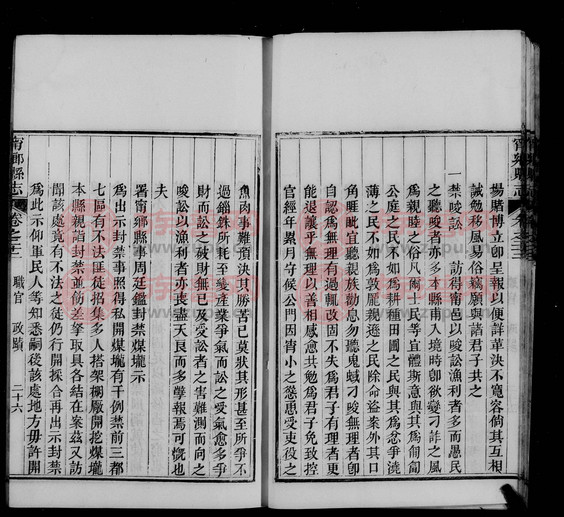 場賭博立卽呈報以便詳革決不寬容倘其互相
誡勉移風易俗竊願與諸君子共之
一禁唆訟　訪得甯邑以唆訟漁利者多而愚民
之聽唆者亦多本縣甫入境時卽欲變刁詐之風
為親睦之俗凡爾士民等宜體斯意與其為匍匐
公庭之民不如為耕種田園之民與其為忿爭澆
薄之民不如為敦龐親遜之民除命盜案外其口
角睚眦宜聽親族勸息勿聽鬼蜮刁唆無理者卽
自認為無理有過輒改固不失為君子有理者更
能退讓乎無理以善相感愈共勉為君子免致控
官經年累月守候公門因宵小之慫恿受吏役之
魚肉事難預決其勝苦已莫狀其形甚至所爭不
過錙銖所耗至變產業爭氣而訟之受氣愈多爭
財而訟之破財無已及受訟者之害難測而向之
唆訟以漁利者亦喪盡天良而多孽報焉可慨也
夫
署甯鄉縣周廷鑑封禁煤壠示
為出示封禁事照得私開煤壠有干例禁前三都
七區有不法匪徒招集多人搭架棚廠開挖煤壠
本縣親詣封禁並飭差拏取具各結在案茲又訪
聞該處竟有不法之徒仍行開採合再出示封禁
為此示仰軍民人等知悉嗣後該處地方毋許開
甯鄉縣志
卷之
職官　政蹟
二十六